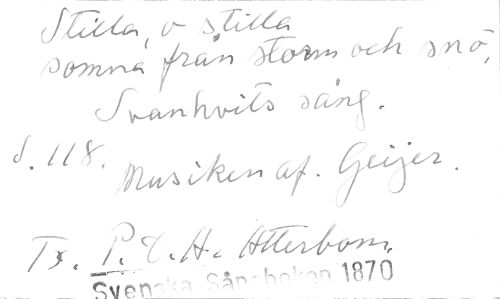 Stilla, o stilla
somna från storm och snö,
Svanhvits sång.
S. 118.
Musiken af. Geijer.
Tx. P. D. A. Atterbom.
Svenska Sångboken 1870